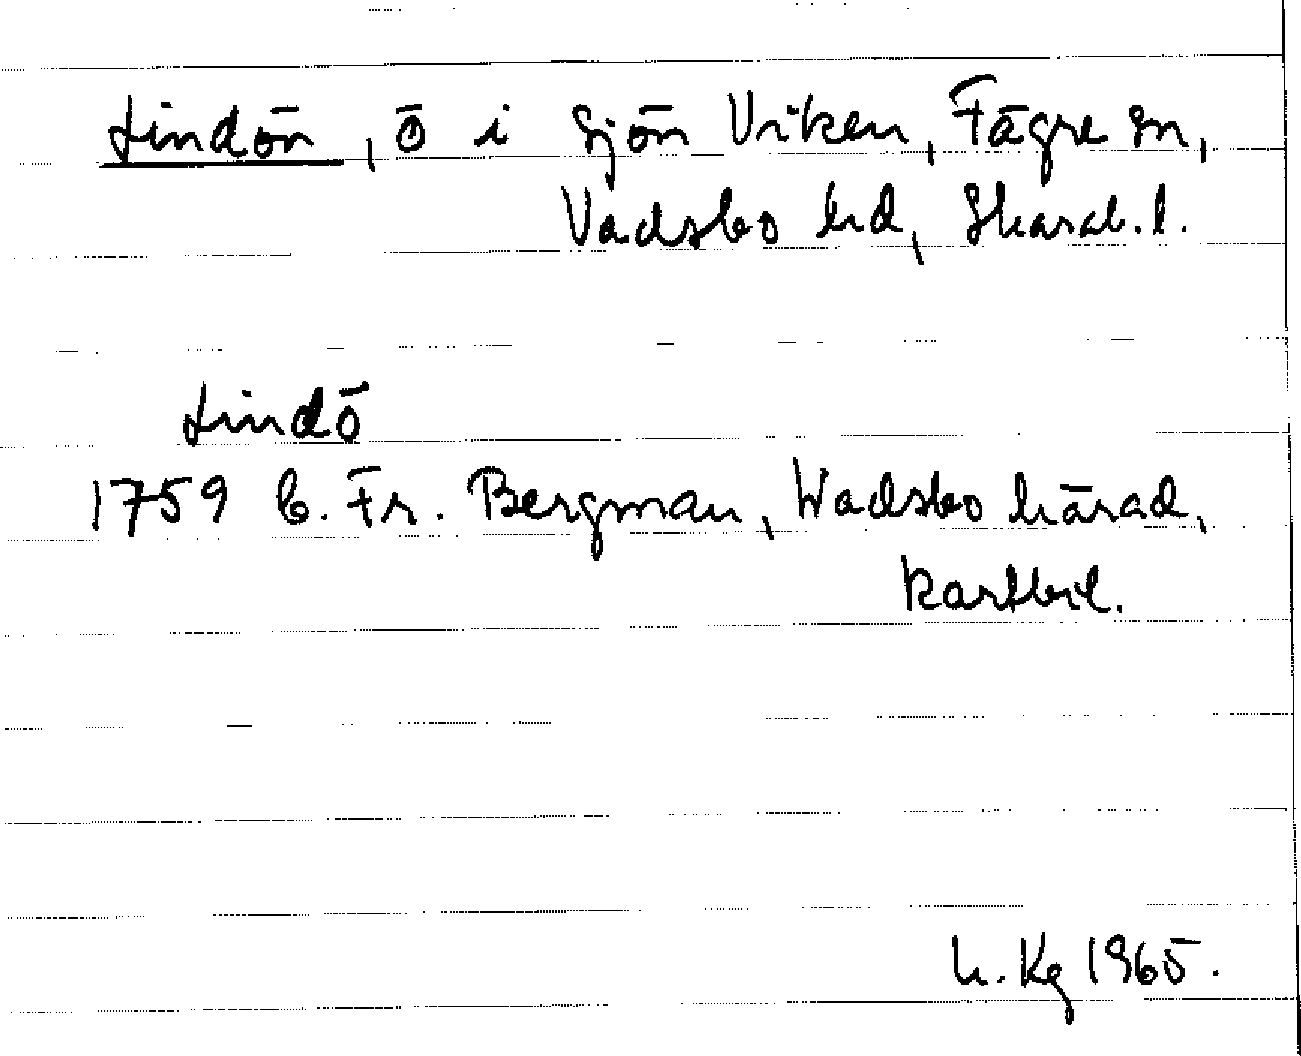 Lindön, ö i sjön Viken, Fägre sn,
Vadsbo hd, Skarab. l.
Lindö
1759 C. Fr. Bergman, Wadsbo härad,
kartbil.
h. Kg 1965.